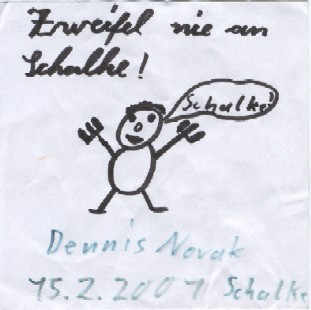 Zweifel nie an
Schalke!
Schalke
Dennis Novak
15.2.2001 Schalke